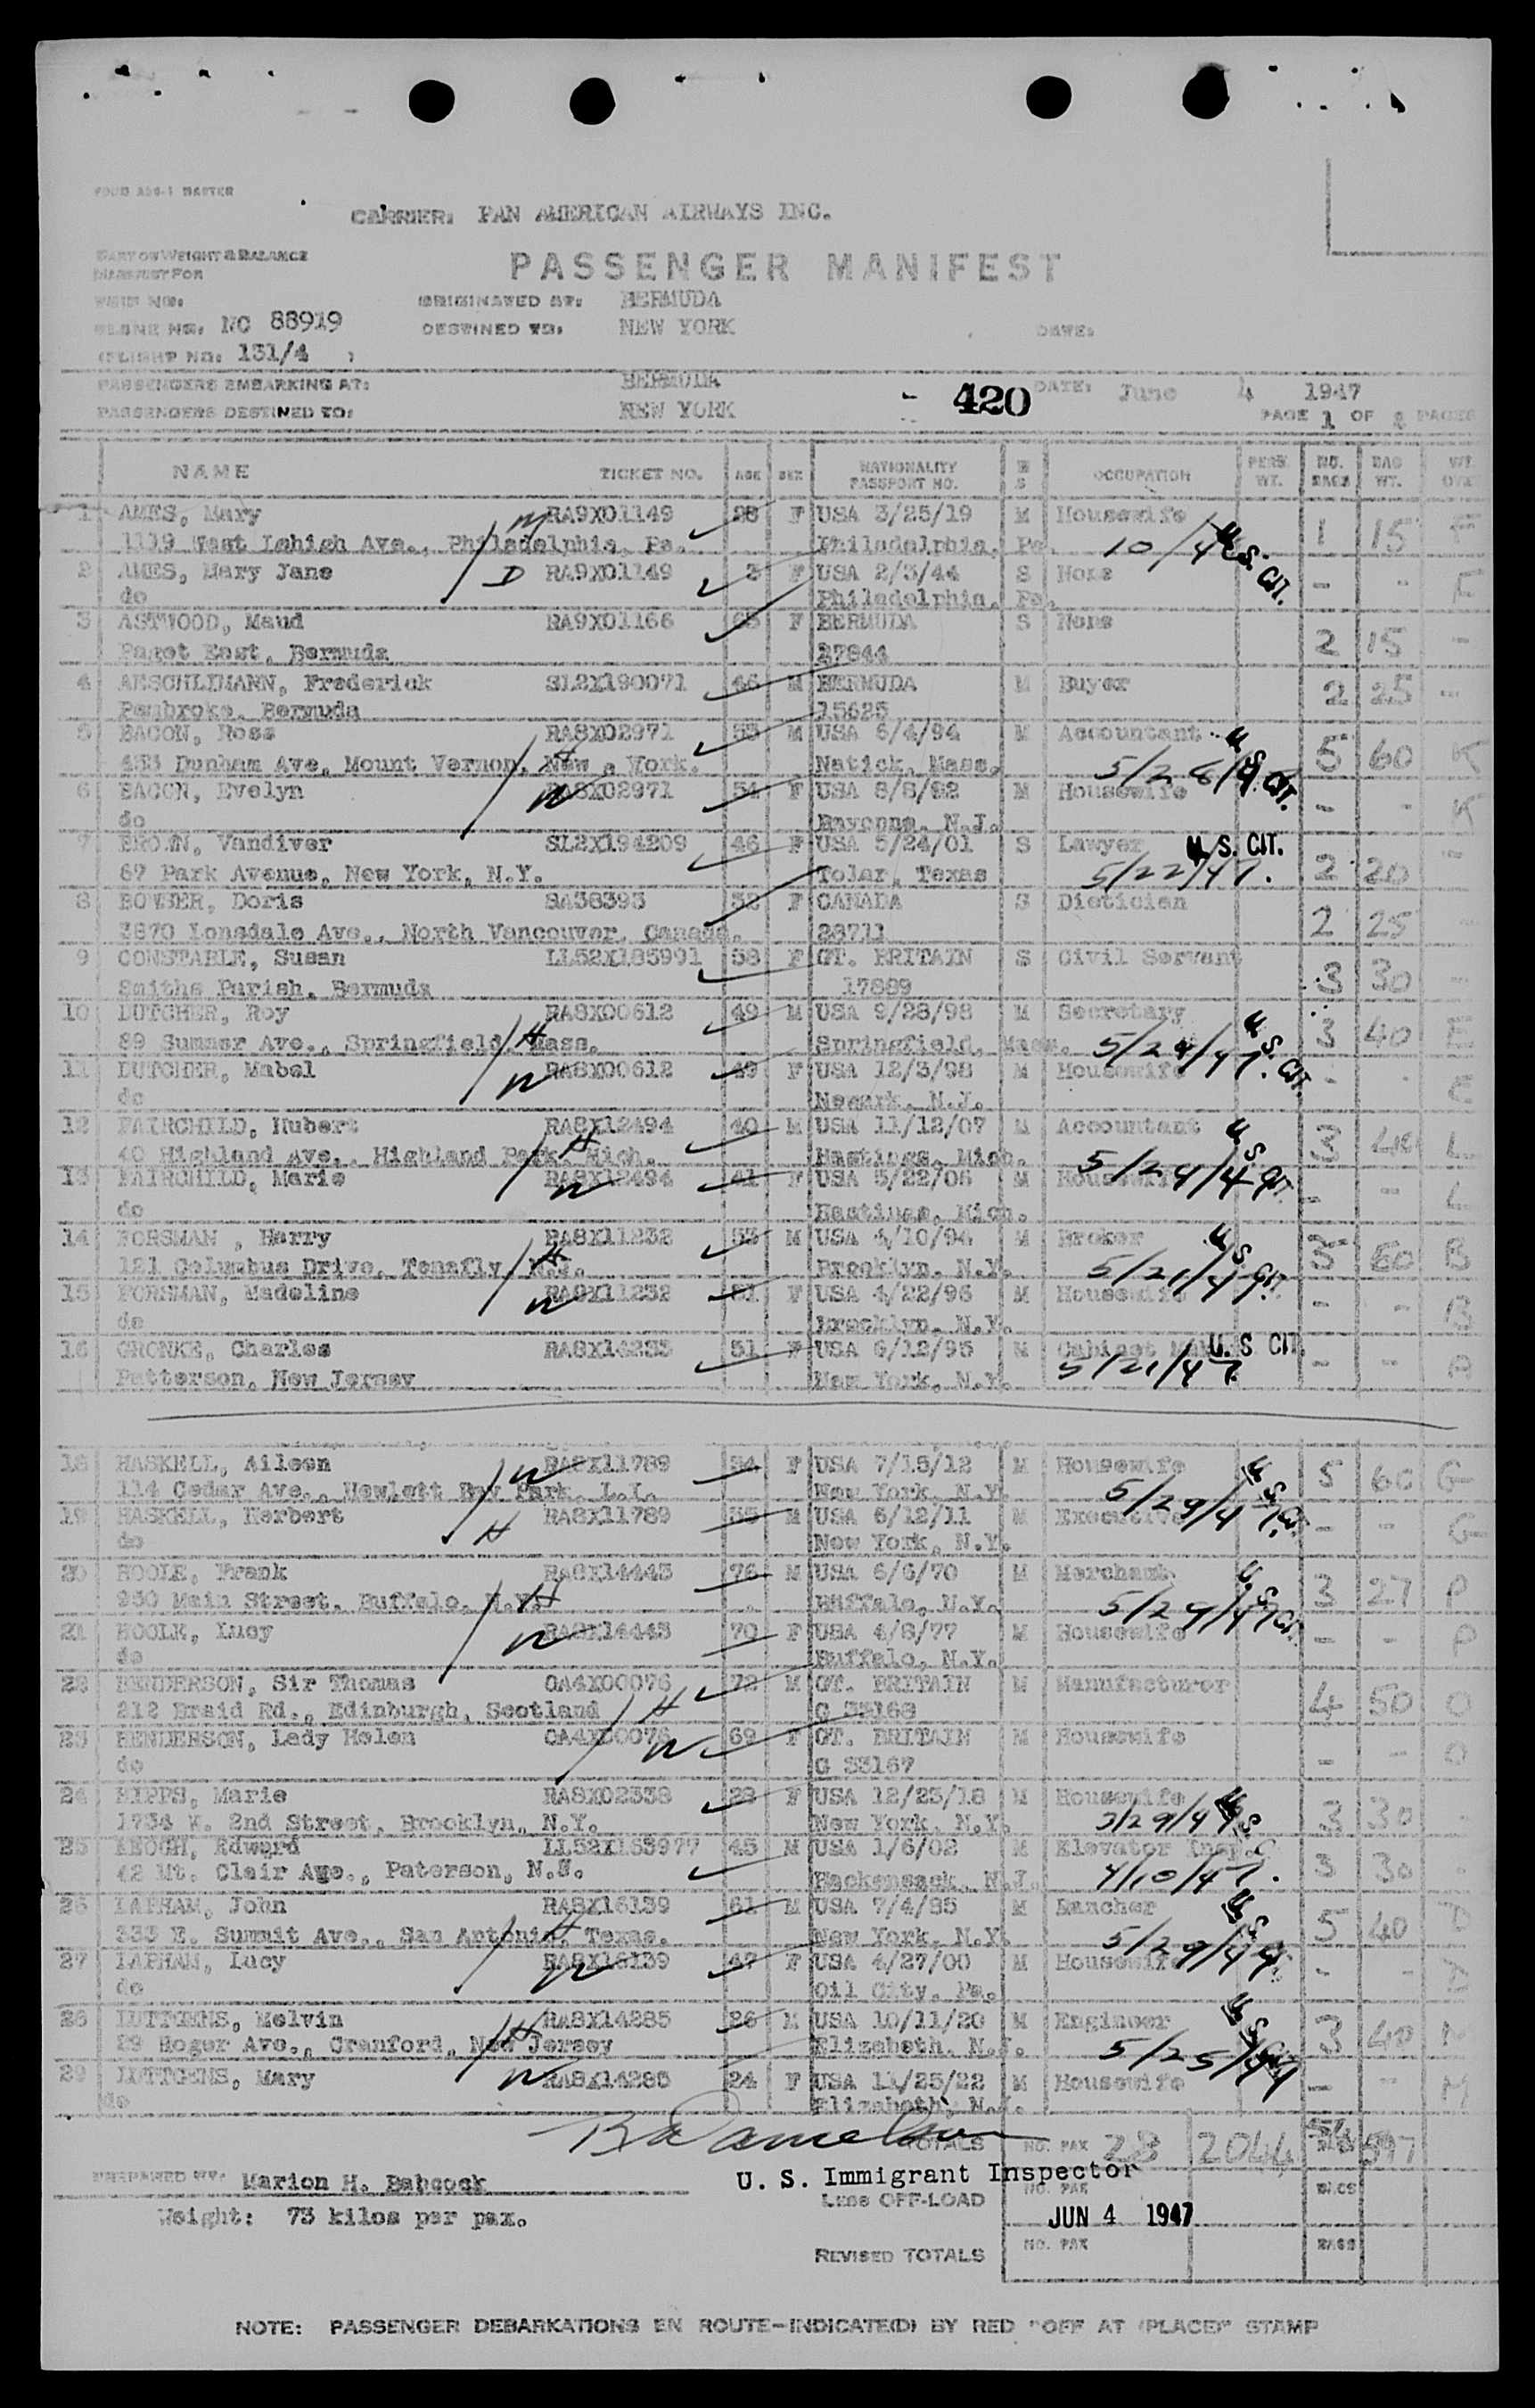 CARRIER: PAN AMERICAN AIRWAYS INC.
PASSENGER MANIFEST
PART ON WEIGHT & BALANCE
MANIFEST FOR
ORIGINATED AT: BERMUDA
PLANE NO: NC 88919 DESTINED TO: NEW YORK DATE:
(FLIGHT NO: 131/4 )
PASSENGERS EMBARKING AT: BERMUDA 420 DATE: June 4 1947
PASSENGERS DESTINED TO: NEW YORK PAGE 1 OF PAGES
NAME TICKET NO. AGE SEX NATIONALITY PASSPORT NO. M S OCCUPATION PERS. WT. NO. BAGS BAG WT. WT.
1 AMES, Mary M RA9X01149 28 F USA 3/25/19 M Housewife 1 15 F
West Lehigh Ave., Philadelphia, Pa. Philadelphia, Pa. 10/4 U.S. CIT.
2 AMES, Mary Jane D RA9X01149 3 F USA 2/3/44 S None - - F
do Philadelphia, Pa.
3 ASTWOOD, Maud RA9X01166 65 F BERMUDA S None 2 15 -
Paget East, Bermuda 27844
4 AESCHLIMANN, Frederick SL2X190071 46 M BERMUDA M Buyer 2 25 -
Pembroke, Bermuda 15625
5 BACON, Ross RA8X02971 53 M USA 6/4/94 M Accountant U.S. CIT. 5 60 K
433 Dunham Ave, Mount Vernon, New York. H Natick, Mass. 5/28/
6 BACON, Evelyn W RA8X02971 54 F USA 8/8/92 M Housewife - - K
do Bayonne, N.J.
7 BROWN, Vandiver SL2X194209 46 F USA 5/24/01 S Lawyer U.S. CIT. 2 20 -
67 Park Avenue, New York, N.Y. Tolar, Texas 5/22/47.
8 BOWSER, Doris SA38393 32 F CANADA S Dietician 2 25 -
3870 Lonsdale Ave., North Vancouver, Canada. 28711
9 CONSTABLE, Susan LL52X185991 58 F GT. BRITAIN S Civil Servant 3 30 -
Smiths Parish, Bermuda 17889
10 DUTCHER, Roy RA8X00612 49 M USA 9/28/98 M Secretary U.S. CIT. 3 40 E
89 Sumner Ave., Springfield, Mass. H Springfield, Mass. 5/24/47.
11 DUTCHER, Mabel W RA8X00612 49 F USA 12/3/98 M Housewife - - E
do Newark, N.J.
12 FAIRCHILD, Hubert RA8X12494 40 M USA 11/12/07 M Accountant U.S. CIT. 3 40 L
40 Highland Ave., Highland Park, Mich. H Hastings, Mich. 5/24/4
13 FAIRCHILD, Marie W RA8X12494 41 F USA 5/22/06 M Housewife - - L
do Hastings, Mich.
14 FORSMAN , Harry RA8X11232 53 M USA 4/10/94 M Broker U.S. CIT. 3 60 B
121 Columbus Drive, Tenafly, N.J. H Brooklyn, N.Y. 5/21/4
15 FORSMAN, Madeline W RA8X11232 51 F USA 4/22/96 M Housewife - - B
do Brooklyn, N.Y.
16 GRONKE, Charles RA8X14233 51 F USA 6/12/95 M Cabinet U.S CIT. - - A
Patterson, New Jersey New York, N.Y. 5/21/47
18 HASKELL, Aileen W RA8X11789 34 F USA 7/15/12 M Housewife U.S. CIT. 5 60 G
114 Cedar Ave., Hewlett Bay Park, L.I. New York, N.Y. 5/29/47
19 HASKELL, Herbert H RA8X11789 35 M USA 6/12/11 M Executive - - G
do New York, N.Y.
20 HOOLE, Frank RA8X14443 76 M USA 6/6/70 M Merchant U.S. CIT. 3 27 P
950 Main Street, Buffalo, N.Y. H Buffalo, N.Y. 5/29/47
21 HOOLE, Lucy W RA8X14443 70 F USA 4/8/77 M Housewife - - P
do Buffalo, N.Y.
22 HENDERSON, Sir Thomas OA4X00076 72 M GT. BRITAIN M Manufacturer 4 50 O
212 Braid Rd., Edinburgh, Scotland H G 33168
23 HENDERSON, Lady Helen W OA4X00076 69 F GT. BRITAIN M Housewife - - O
do G 33167
24 HIPPS, Marie RA8X02338 28 F USA 12/23/18 M Housewife U.S. 3 30 -
1734 W. 2nd Street, Brooklyn, N.Y. New York, N.Y. 3/29/47
25 KEOGH, Edward LL52X153977 45 M USA 1/6/02 M Elevator Insp. 3 30 .
42 Mt. Clair Ave., Paterson, N.J. Hackensack, N.J. 4/10/47.
26 LAPHAM, John RA8X16139 61 M USA 7/4/85 M Rancher U.S. 5 40 A
333 E. Summit Ave., San Antonio, Texas. H New York, N.Y. 5/29/4
27 LAPHAM, Lucy W RA8X16139 47 F USA 4/27/00 M Housewife - - A
do Oil City, Pa.
28 LUTTGENS, Melvin RA8X14285 26 M USA 10/11/20 M Engineer U.S. 3 40 M
29 Roger Ave., Cranford, New Jersey H Elizabeth, N.J. 5/25/47
29 LUTTGENS, Mary W RA8X14285 24 F USA 11/25/22 M Housewife - - M
do Elizabeth, N.J.
TOTALS NO. PAX 28 2044 597
PREPARED BY: Marion H. Babcock U. S. Immigrant Inspector
LESS OFF-LOAD NO. PAX BAGS
Weight: 73 kilos per pax. JUN 4 1947
REVISED TOTALS NO. PAX BAGS
NOTE: PASSENGER DEBARKATIONS EN ROUTE-INDICATE(D) BY RED "OFF AT (PLACE)" STAMP